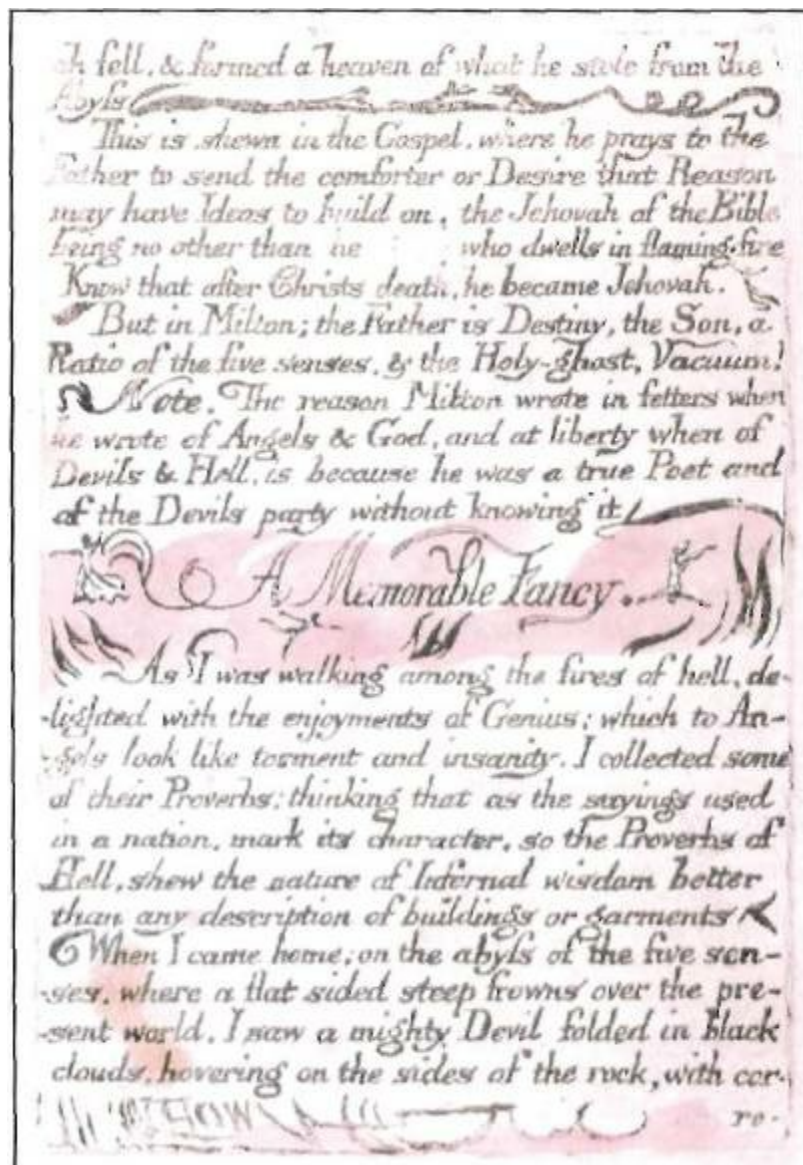 ah fell, & formed a heaven of what he stole from the
Abyſs
This is shewn in the Gospel, where he prays to the
Father to send the comforter or Desire that Reason
may have Ideas to build on, the Jehovah of the Bible
being no other than he who dwells in flaming fire
Know that after Christs death, he became Jehovah.
But in Milton; the Father is Destiny, the Son, a
Ratio of the five senses, & the Holy-ghost, Vacuum!
Note. The reason Milton wrote in fetters when
he wrote of Angels & God, and at liberty when of
Devils & Hell, is because he was a true Poet and
of the Devils party without knowing it
A Memorable Fancy.
As I was walking among the fires of hell, de-
-lighted with the enjoyments of Genius; which to An-
-gels look like torment and insanity. I collected some
of their Proverbs; thinking that as the sayings used
in a nation, mark its character, so the Proverbs of
Hell, shew the nature of Infernal wisdom better
than any description of buildings or garments
When I came home; on the abyſs of the five sen-
-ses, where a flat sided steep frowns over the pre-
-sent world. I saw a mighty Devil folded in black
clouds, hovering on the sides of the rock, with cor-
ro-